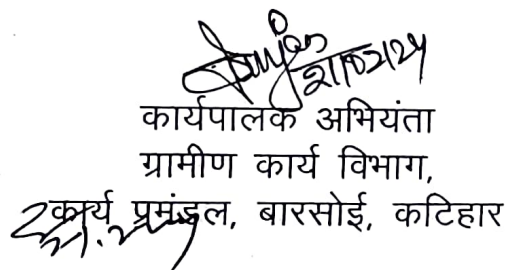 कार्यपालक अभियंता
ग्रामीण कार्य विभाग,
कार्य प्रमंडल, बारसोई, कटिहार